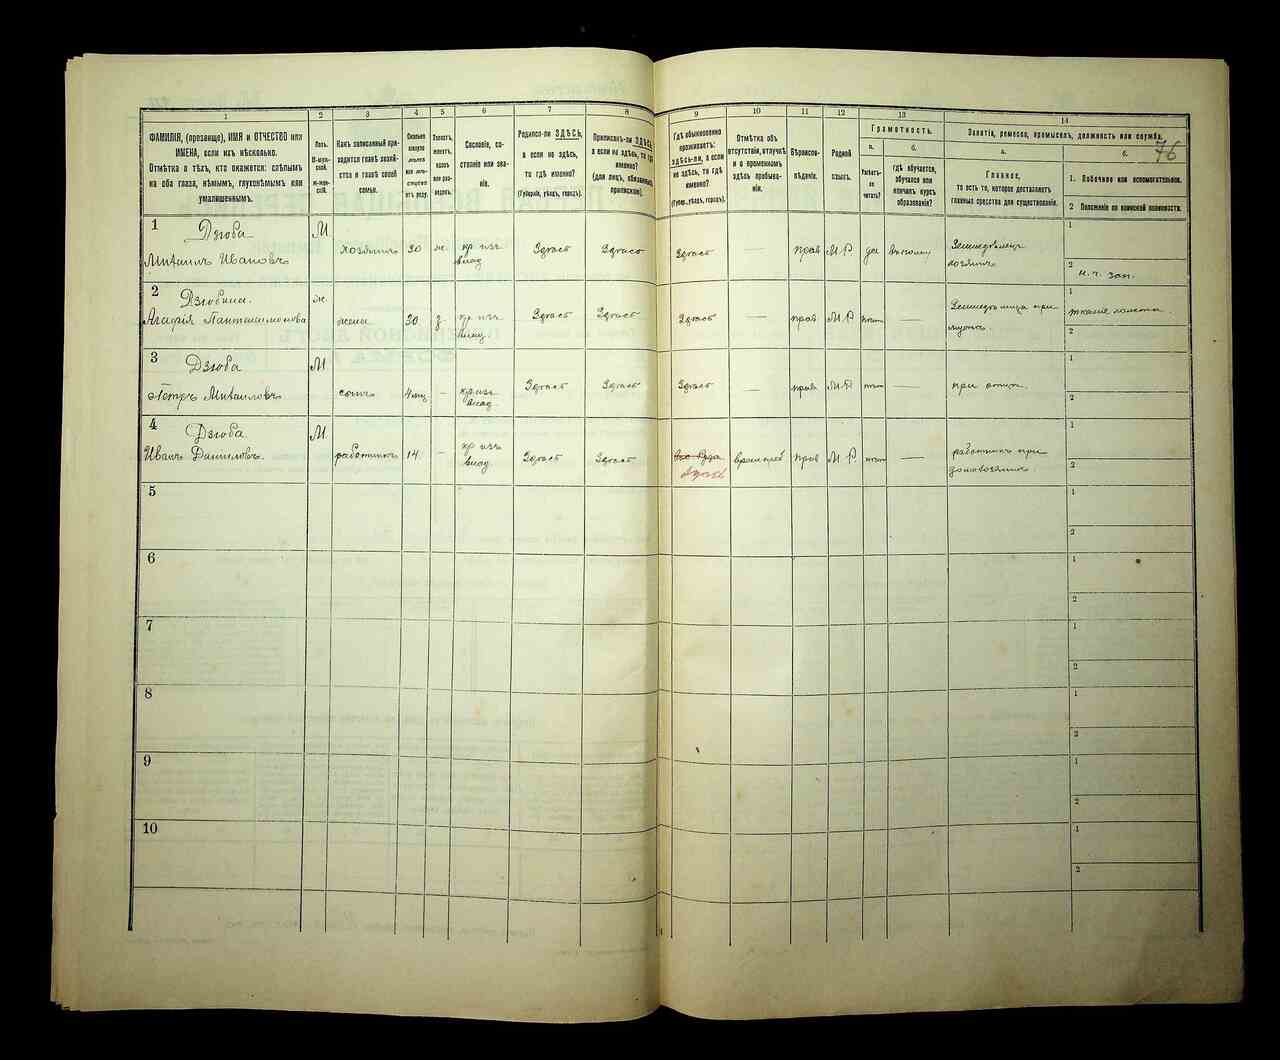 1
2
3
4
5
6
7
8
9
10
11
12
13
14
76
ФАМИЛІЯ, (прозвище), ИМЯ и ОТЧЕСТВО или
ИМЕНА, если ихъ нѣсколько.
Отмѣтка о тѣхъ, кто окажется: слѣпымъ
на оба глаза, нѣмымъ, глухонѣмымъ или
умалишеннымъ.
Полъ.
М-муж-
ской.
Ж-жен-
скій.
Какъ записанный при-
ходится главѣ хозяй-
ства и главѣ своей
семьи.
Сколько
Холостъ,
женатъ,
вдовъ
или раз-
веденъ.
Сословіе, со-
стояніе или зва-
ніе.
Родился-ли ЗДѢСЬ,
а если не здѣсь,
то гдѣ именно?
(Губернія, уѣздъ, городъ).
Приписанъ-ли ЗДѢСЬ,
а если не здѣсь, то гдѣ
именно?
(для лицъ, обязанныхъ
припискою).
Гдѣ обыкновенно
проживаетъ:
ЗДѢСЬ-ЛИ, а если
не здѣсь, то гдѣ
именно?
(Губер., уѣздъ, городъ).
Отмѣтка объ
отсутствіи, отлучкѣ
и о временномъ
здѣсь пребыва-
ніи.
Вѣроиспо-
вѣданіе.
Родной
языкъ.
Грамотность.
а.
Умѣетъ-
ли
читать?
б.
гдѣ обучается,
обучался или
кончилъ курсъ
образованія?
Занятіе, ремесло, промыселъ, должность или служба.
а.
Главное,
то есть то, которое доставляетъ
главныя средства для существованія.
б.
1. Побочное или вспомогательное.
2 Положеніе по воинской повинности.
1
Дзюба
Михаилъ Ивановъ
М
хозяинъ
30
ж.
кр изъ
влад
Здѣсь
Здѣсь
Здѣсь
—
прав
М.Р.
да
Земледѣлецъ
хозяинъ
1
2
н.ч. зап.
2
Дзюбина.
Агафія Пантелимонова
ж.
жена
30
з.
кр изъ
влад.
Здѣсь
Здѣсь
Здѣсь
—
прав
М Р.
нѣтъ
—
при
мужѣ.
1
тканіе холста.
2
3
Дзюба
Петръ Михаиловъ
М
сынъ
4 мц
-
кр изъ
влад.
Здѣсь
Здѣсь
Здѣсь
—
прав
М.Р.
нѣтъ
—
при отцѣ.
1
2
4
Дзюба
Иванъ Даниловъ.
М.
работникъ
14.
-
кр изъ
влад
Здѣсь
Здѣсь
Здѣсь
прав
М Р.
нѣтъ
—
работникъ при
домохозяинѣ.
1
2
5
1
2
6
1
2
7
1
2
8
1
2
9
1
2
10
1
2